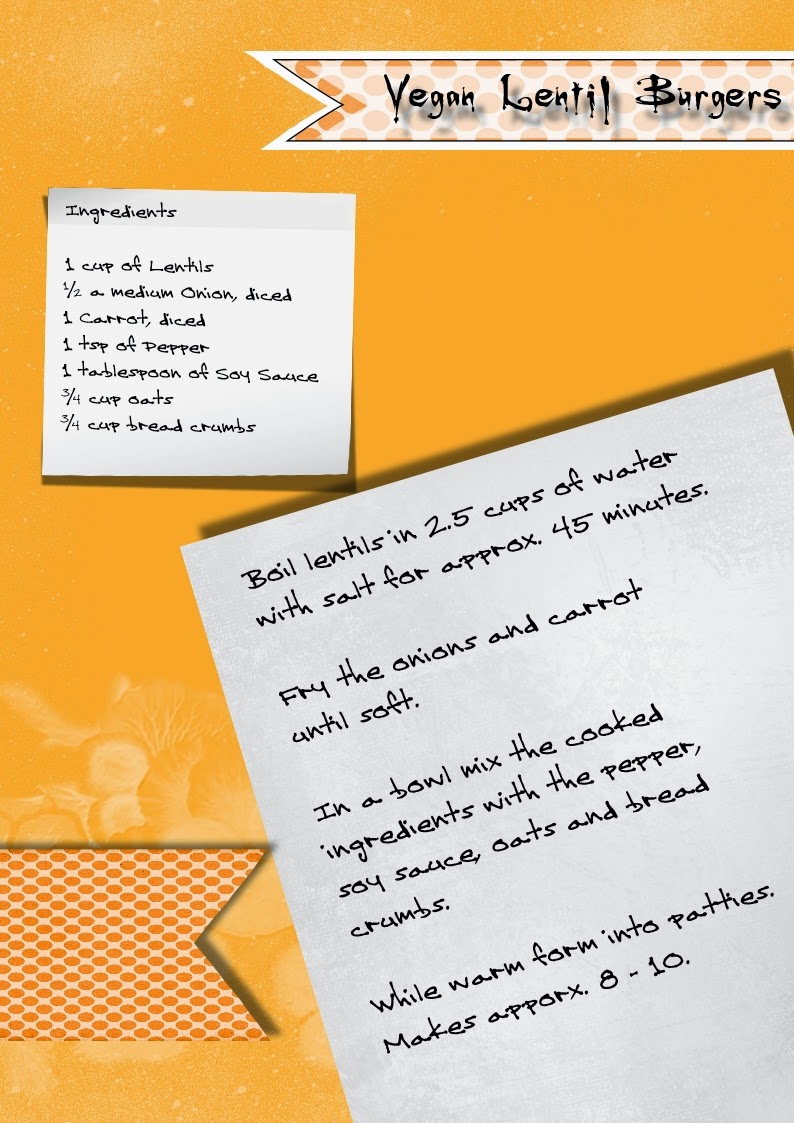 Vegan Lentil Burgers
Ingredients
1 cup of Lentils
½ a medium Onion, diced
1 Carrot, diced
1 tsp of Pepper
1 tablespoon of Soy Sauce
¾ cup oats
¾ cup bread crumbs
Boil lentils in 2.5 cups of water
with salt for approx. 45 minutes.
Fry the onions and carrot
until soft.
In a bowl mix the cooked
ingredients with the pepper,
soy sauce, oats and bread
crumbs.
While warm form into patties.
Makes apporx. 8 - 10.